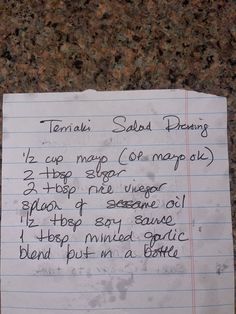 Terriaki Salad Dressing
1/2 cup mayo (OP mayo ok)
2 tbsp sugar
2 tbsp rice vinegar
splash of sesame oil
1/2 tbsp soy sauce
1 tbsp minied garlic
blend put in a bottle